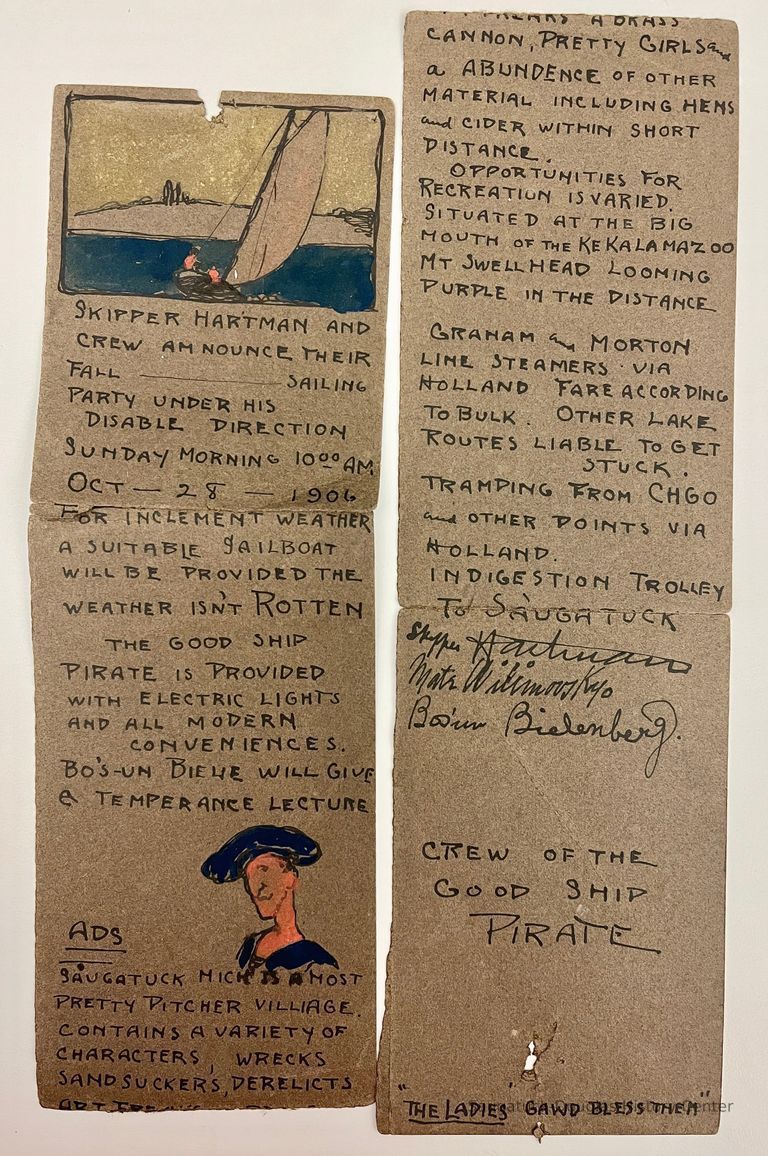 SKIPPER HARTMAN AND
CREW ANNOUNCE THEIR
FALL SAILING
PARTY UNDER HIS
DISABLE DIRECTION
SUNDAY MORNING 10:00 AM.
OCT — 28 — 1906
FOR INCLEMENT WEATHER
A SUITABLE SAILBOAT
WILL BE PROVIDED THE
WEATHER ISN'T ROTTEN
THE GOOD SHIP
PIRATE IS PROVIDED
WITH ELECTRIC LIGHTS
AND ALL MODERN
CONVENIENCES.
BO'S-UN BIELIE WILL GIVE
A TEMPERANCE LECTURE
ADS
SAUGATUCK MICH IS A MOST
PRETTY PITCHER VILLIAGE.
CONTAINS A VARIETY OF
CHARACTERS, WRECKS
SANDSUCKERS, DERELICTS
ART FREAKS A BRASS
CANNON, PRETTY GIRLS and
a ABUNDENCE OF OTHER
MATERIAL INCLUDING HENS
and CIDER WITHIN SHORT
DISTANCE.
OPPORTUNITIES FOR
RECREATION IS VARIED.
SITUATED AT THE BIG
MOUTH OF THE KEKALAMAZOO
MT SWELLHEAD LOOMING
PURPLE IN THE DISTANCE
GRAHAM and MORTON
LINE STEAMERS VIA
HOLLAND FARE ACCORDING
TO BULK. OTHER LAKE
ROUTES LIABLE TO GET
STUCK.
TRAMPING FROM CHGO
and OTHER POINTS VIA
HOLLAND.
INDIGESTION TROLLEY
TO SAUGATUCK
Skipper Hartman
Mate Wilimovsky
Bos'un Bielenberg.
CREW OF THE
GOOD SHIP
PIRATE
"THE LADIES" GAWD BLESS THEM"
Saugatuck-Douglas History Center